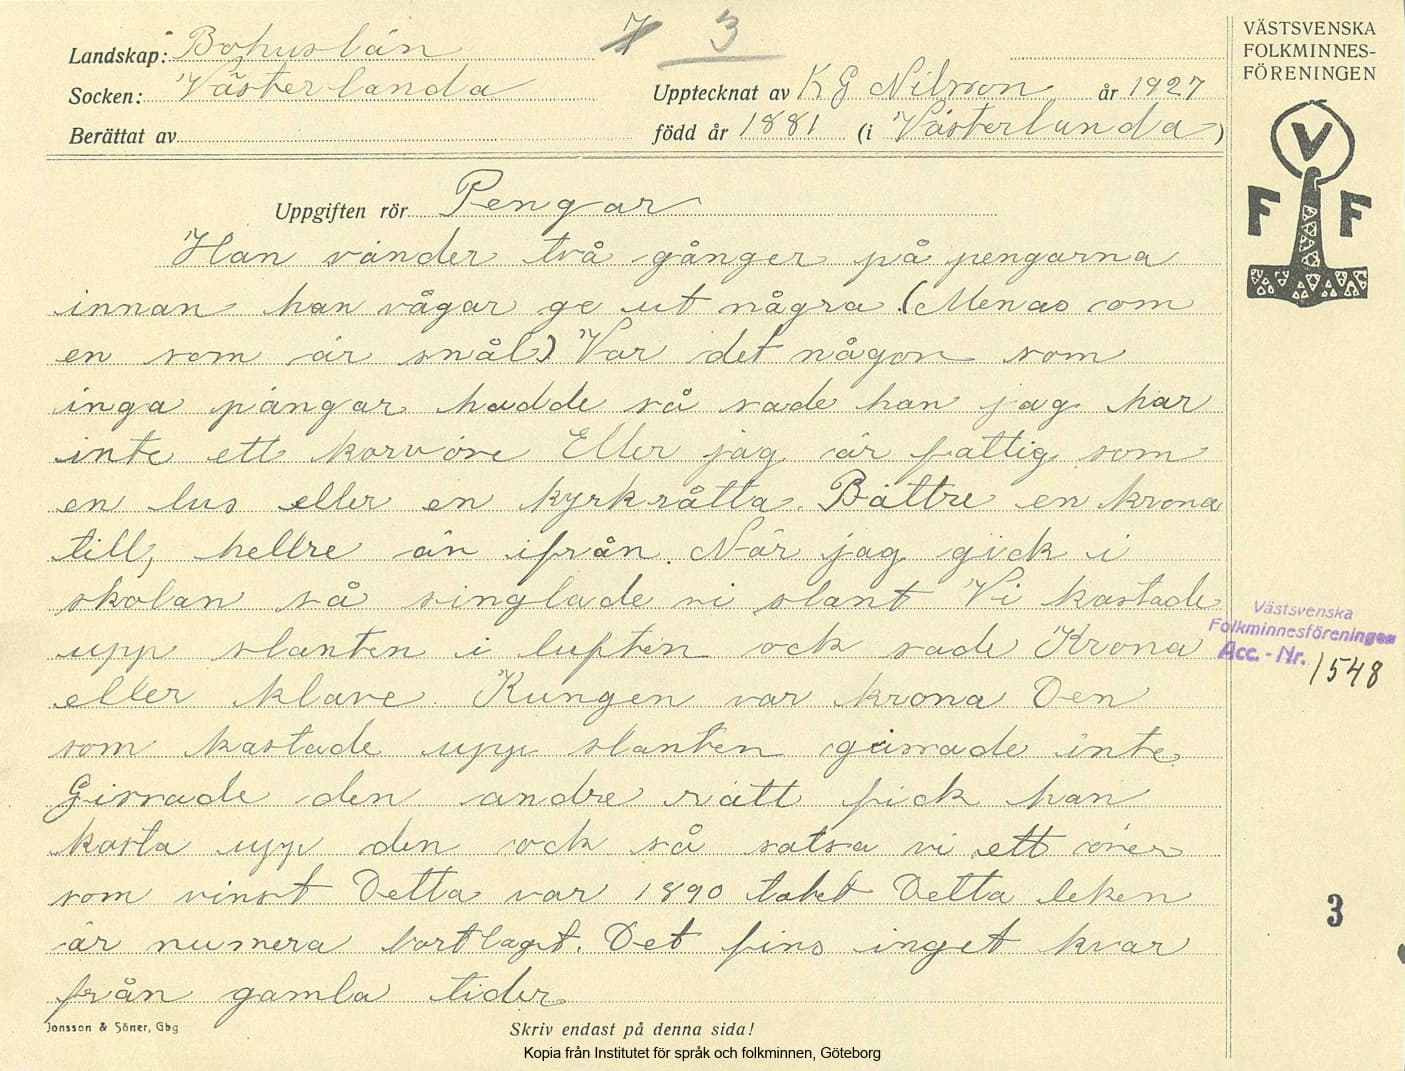 Landskap: Bohuslän
7 3
Socken: Västerlanda
Upptecknat av K G Nilsson år 1927
Berättat av
född år 1881 (i Västerlanda)
VÄSTSVENSKA
FOLKMINNES-
FÖRENINGEN
V
F F
Uppgiften rör Pengar
Han vänder två gånger på pengarna
innan han vågar ge ut några (Menas om
en som är snål) Var det någon som
inga pängar hadde så sade han jag har
inte ett korvöre Eller jag är fattig som
en lus eller en kyrkråtta. Bättre en krona
till, hellre än ifrån. När jag gick i
skolan så singlade vi slant Vi kastade
upp slanten i luften ock sade Krona
eller klave. Kungen var krona Den
som kastade upp slanten gissade inte
Gissade den andre rätt fick han
kasta upp den ock så satsa vi ett öres
som vinst Detta var 1890 talet Detta leken
är numera bortlagt. Det fins inget kvar
från gamla tider
Västsvenska
Folkminnesföreningen
Acc. - Nr. 1548
3
Jonsson & Söner, Gbg
Skriv endast på denna sida!
Kopia från Institutet för språk och folkminnen, Göteborg